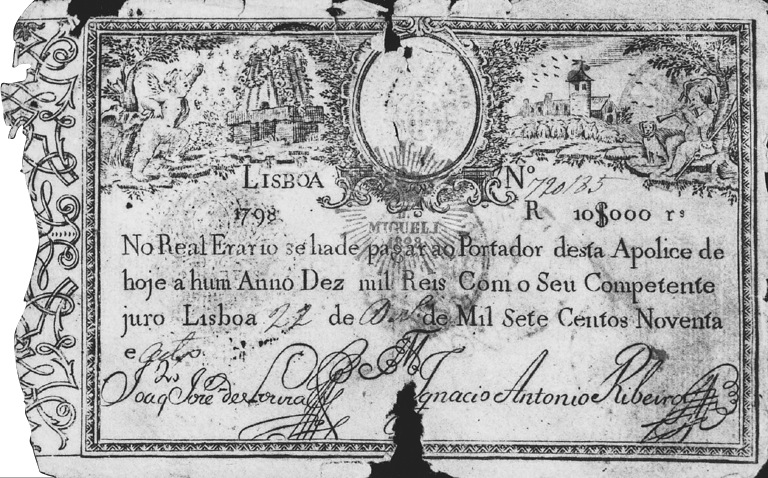 LISBOA Nº 720185
1798 R 10$000 rˢ
D. MIGUEL I.
1828
No Real Erario se hade pagar ao Portador desta Apolice de
hoje a hum Anno Dez mil Reis Com o Seu Competente
juro Lisboa 22 de de Mil Sete Centos Noventa
e outo
Joaq Jose de Ignacio Antonio Ribeiro